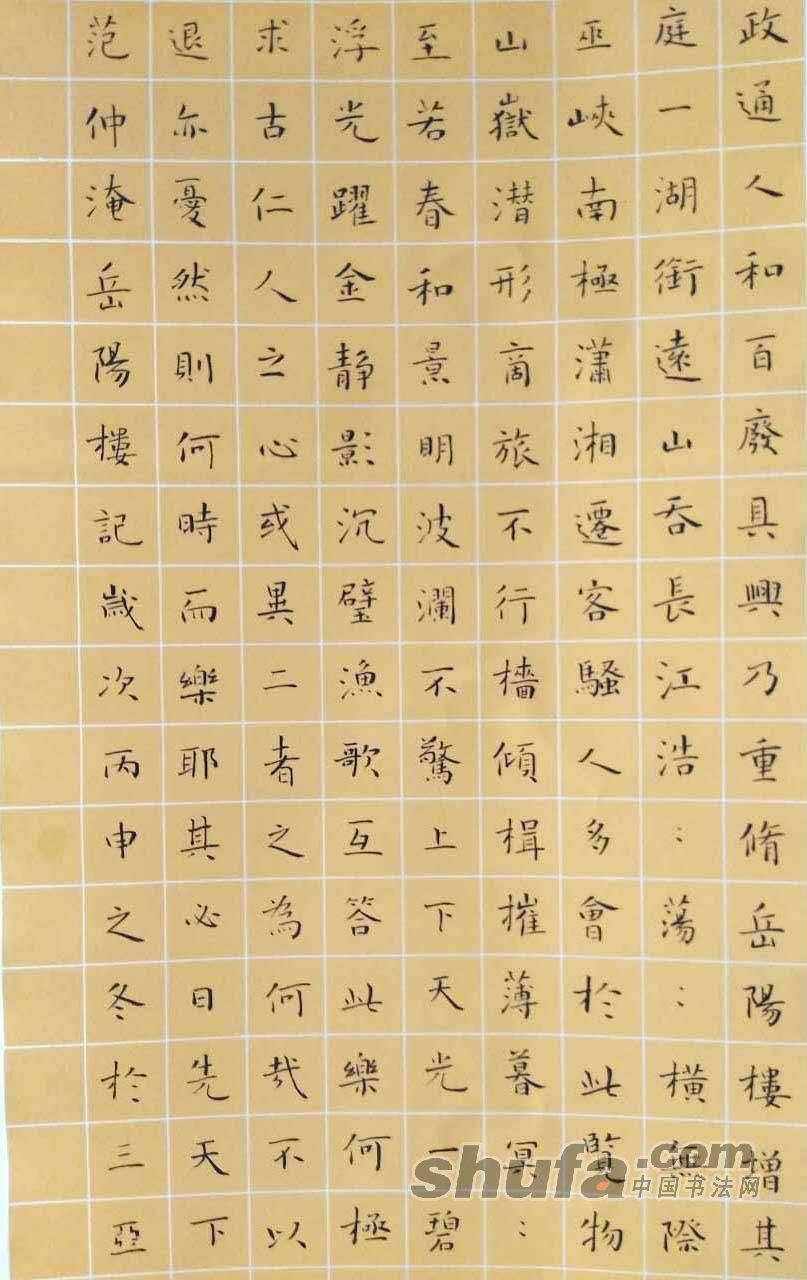 政通人和百廢具興乃重脩岳陽樓增其
庭一湖銜遠山吞長江浩:蕩:橫無際
巫峽南極瀟湘遷客騷人多會於此覽物
山嶽潜形商旅不行檣傾楫摧薄暮冥:
至若春和景明波瀾不驚上下天光一碧
浮光躍金静影沉璧漁歌互答此樂何極
求古仁人之心或異二者之為何哉不以
退亦憂然則何時而樂耶其必曰先天下
范仲淹岳陽樓記歲次丙申之冬於三亞
shufa.com
中国书法网